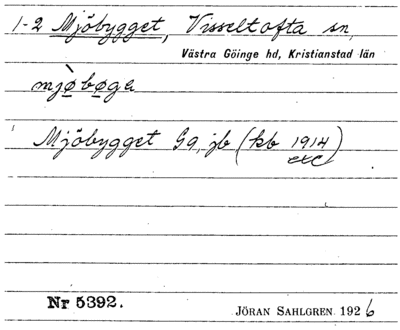 1-2 Mjöbygget, Visseltofta sn,
Västra Göinge hd, Kristianstad län
mjò̱bø̱ga
Mjöbygget Gg, jb (kb 1914)
exc
Nr 5392.
JÖRAN SAHLGREN 1926